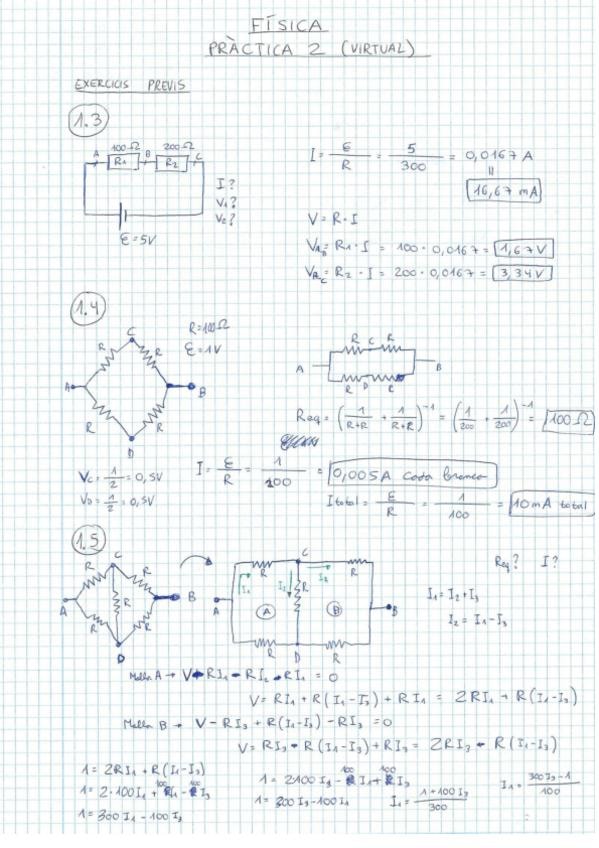 FÍSICA
PRÀCTICA 2 (VIRTUAL)
EXERCICIS PREVIS
1.3
100Ω 200Ω
A R1 B R2 C
I?
V1?
V2?
ε=5V
I = ε/R = 5/300 = 0,0167 A
=
16,67 mA
V = R · I
VAB = R1 · I = 100 · 0,0167 = 1,67V
R2 · I = 200 · 0,0167 = 3,34V
1.4
R=100Ω
ε=1V
C
R R
A B
R R
D
R C R
A B
R D R
Req = (1/(R+R) + 1/(R+R))⁻¹ = (1/200 + 1/200)⁻¹ = 100Ω
VC = 1/2 = 0,5V
VD = 1/2 = 0,5V
I = ε/R = 1/200 = 0,005A cada branca
I total = ε/R = 1/100 = 10 mA total
1.5
C
R R
A R B
R R
D
C
R R
I1 I3 I2
A A R B B
R D R
Req? I?
I1 = I2 + I3
I2 = I1 - I3
Malla A → V - RI1 - RI2 - RI1 = 0
V = RI1 + R(I1-I3) + RI1 = 2RI1 + R(I1-I3)
Malla B → V - RI3 + R(I1-I3) - RI3 = 0
V = RI3 - R(I1-I3) + RI3 = 2RI3 - R(I1-I3)
1 = 2RI1 + R(I1-I3)
1 = 300I1 - 100I3
1 = 300I3 - 100I1
I1 = (1+100I3)/300
I1 = (300I3-1)/100